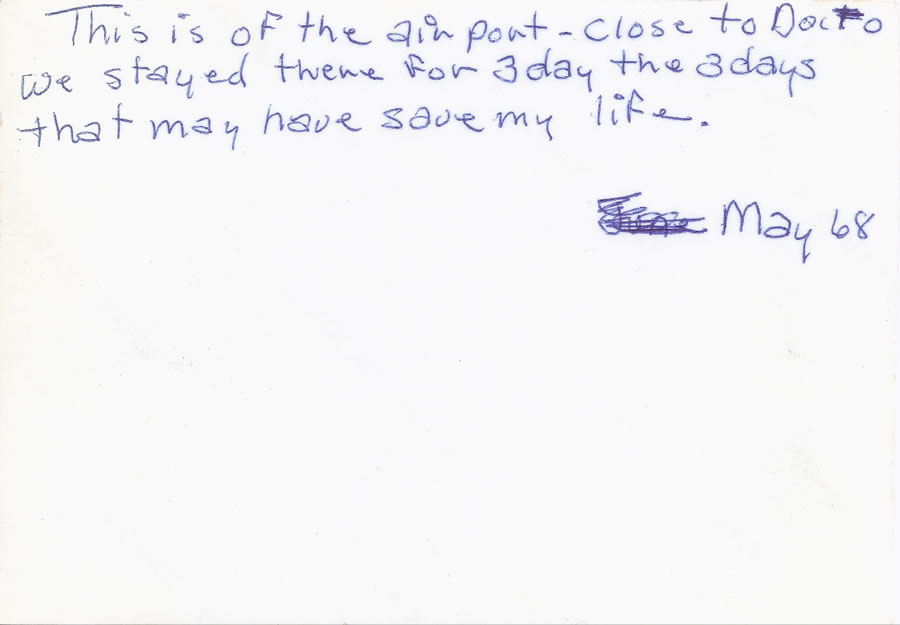 This is of the air port - close to Docto
we stayed there for 3 day the 3 days
that may have save my life.
May 68